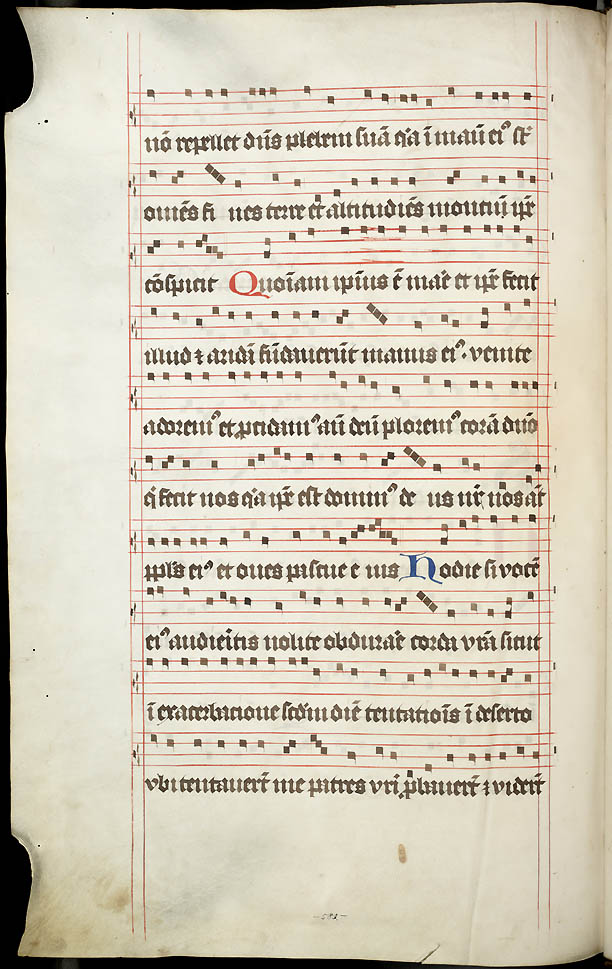 nō repellet dn̄s plebem suā q̇a ī manū ei⁹ st̄
om̄es fi nes terre et altitudiēs montiū ip̄e
cōspicit Quoīam ip̄ius ē mar̄e et ip̄e fecit
illud ⁊ aridā fūdauerūt manus ei⁹. venite
adorem⁹ et ꝓcidam⁹ aū deū plorem⁹ corā dn̄o
q̇ fecit nos q̇a ip̄e est domin⁹ de us nr̄ nos aūt
ppl̄s ei⁹ et oues pascue e ius Hodie si vocē
ei⁹ audieritis nolite obdurar̄e corda vr̄a sicut
ī exacerbacione scd̄m diē tentatiōis ī deserto
vbi tentauer̄t me patres vr̄i ꝓbauer̄t ⁊ vider̄t
-581-